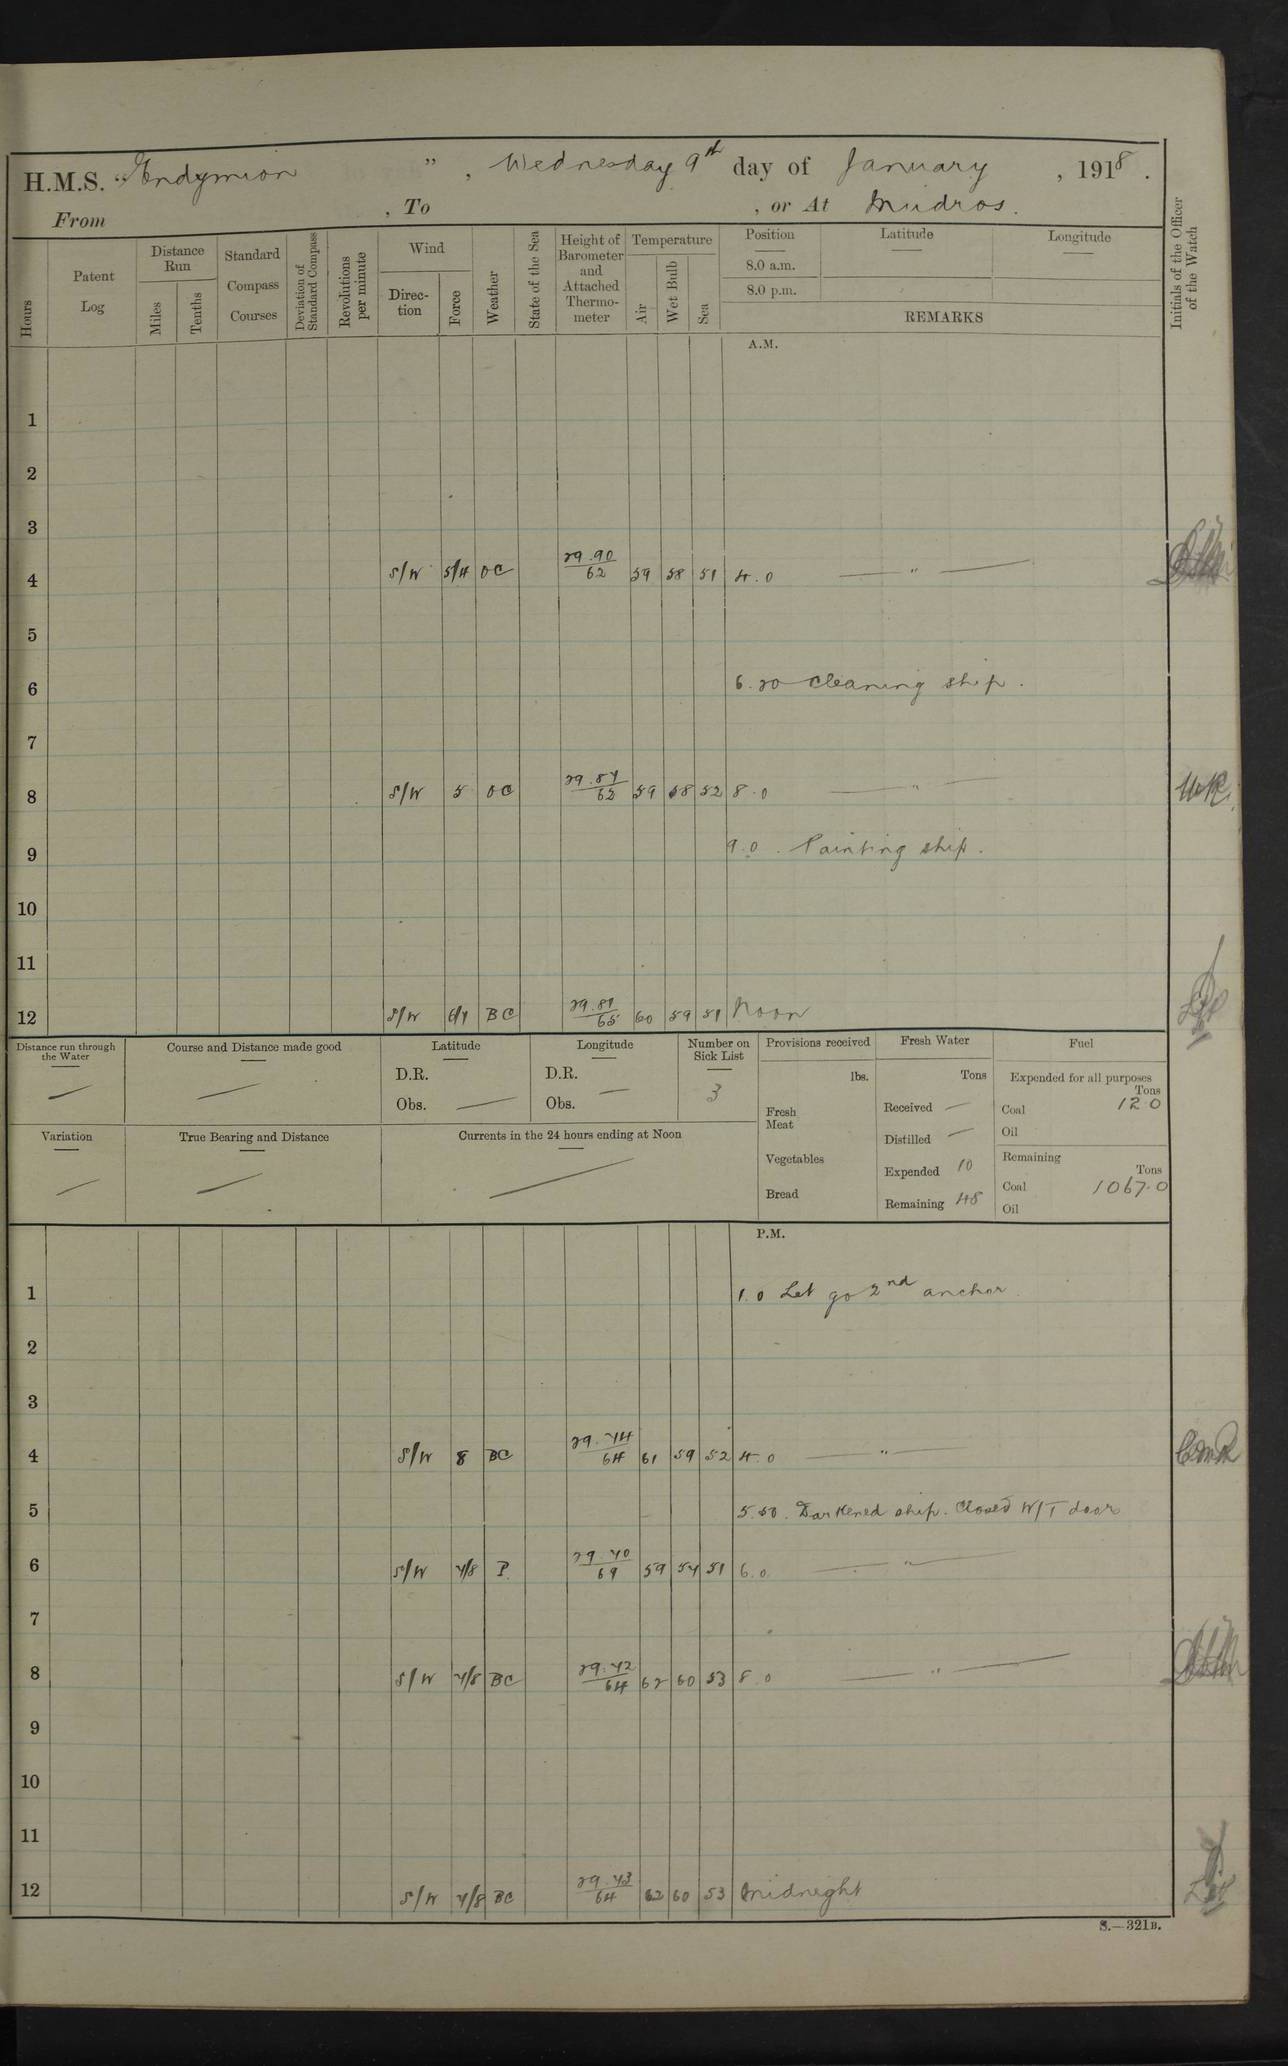 H.M.S. "Endymion", Wednesday 9th day of January, 1918.
From , To , or At Mudros.
Initials of the Officer of the Watch
Hours
Patent Log
Distance Run
Miles
Tenths
Standard Compass Courses
Deviation of Standard Compass
Revolutions per minute
Wind
Direction
Force
Weather
State of the Sea
Height of Barometer and Attached Thermometer
Temperature
Air
Wet Bulb
Sea
Position
8.0 a.m.
8.0 p.m.
Latitude
Longitude
REMARKS
A.M.
1
2
3
4 S/W 5/4 OC 29.90/62 59 58 51 4.0 — " —
5
6 6.20 Cleaning ship.
7
8 S/W 5 OC 29.87/62 59 58 52 8.0 — " —
9 9.0. Painting ship.
10
11
12 S/W 6/7 BC 29.81/65 60 59 51 Noon
Distance run through the Water —
Course and Distance made good —
Latitude
D.R.
Obs. —
Longitude
D.R.
Obs. —
Number on Sick List
3
Provisions received
lbs.
Fresh Meat
Vegetables
Bread
Fresh Water
Tons
Received —
Distilled —
Expended 10
Remaining 48
Fuel
Expended for all purposes
Tons
Coal 12.0
Oil
Remaining
Tons
Coal 1067.0
Oil
Variation —
True Bearing and Distance —
Currents in the 24 hours ending at Noon —
P.M.
1 1.0 Let go 2nd anchor
2
3
4 S/W 8 BC 29.74/64 61 59 52 4.0 — " —
5 5.50. Darkened ship. Closed W/T door
6 S/W 7/8 P. 29.70/69 59 57 51 6.0. — " —
7
8 S/W 7/8 BC 29.72/64 62 60 53 8.0 — " —
9
10
11
12 S/W 7/8 BC 29.73/64 62 60 53 Midnight
S.—321B.